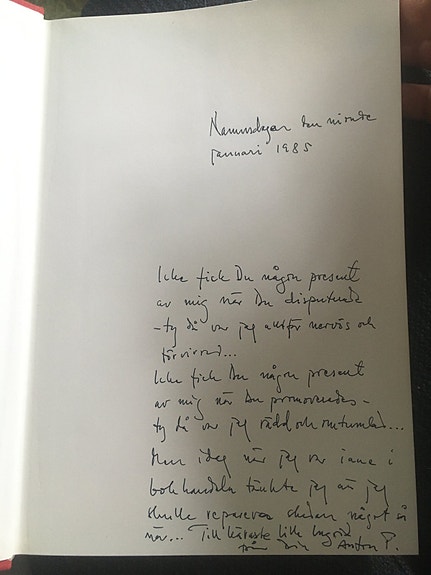 Namnsdagen den nionde
januari 1985
Icke fick Du någon present
av mig när Du disputerade
– ty då var jag alltför nervös och
förvirrad...
Icke fick Du någon present
av mig när Du promoverades –
ty då var jag rädd och omtumlad...
Men idag när jag var inne i
bokhandeln tänkte jag att jag
skulle reparera skadan något så
när... Till käraste lilla
från din Anton P.